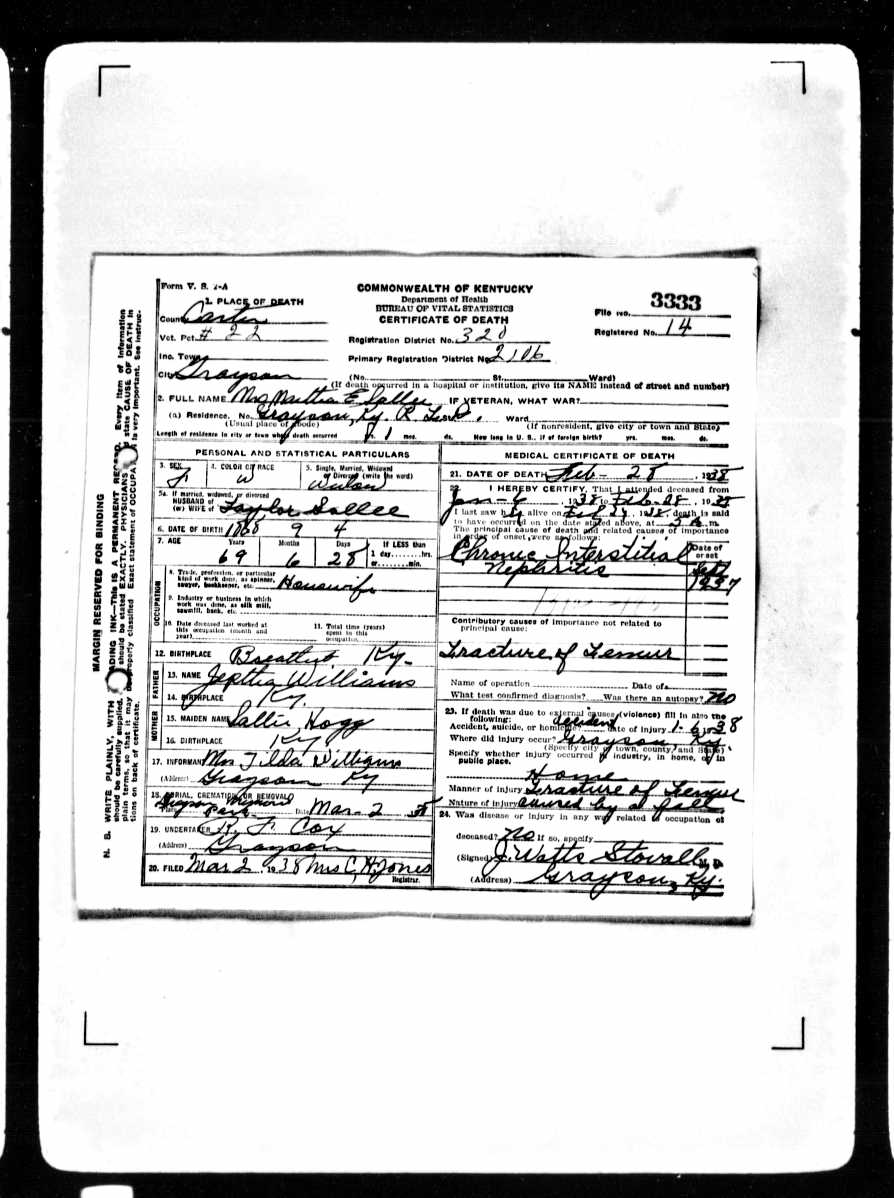 Form V. S. 1-A
COMMONWEALTH OF KENTUCKY
Department of Health
BUREAU OF VITAL STATISTICS
CERTIFICATE OF DEATH
File No. 3333
Registered No. 14
1. PLACE OF DEATH
County Carter
Vot. Pct. # 22
Registration District No. 320
Primary Registration District No. 2106
Inc. Town
City Grayson
(No. St. Ward)
(If death occurred in a hospital or institution, give its NAME instead of street and number)
2. FULL NAME Mrs Martha E. Sallee IF VETERAN, WHAT WAR?
(a) Residence. No. Grayson, Ky. R. Ward
(Usual place of abode) (If nonresident, give city or town and State)
Length of residence in city or town where death occurred yrs. 1 mos. ds. How long in U. S., if of foreign birth? yrs. mos. ds.
PERSONAL AND STATISTICAL PARTICULARS
3. SEX F
4. COLOR OR RACE W
5. Single, Married, Widowed or Divorced (write the word) Widow
5a. If married, widowed, or divorced
HUSBAND of
(or) WIFE of Taylor Sallee
6. DATE OF BIRTH 1868 9 4
7. AGE Years Months Days If LESS than
69 6 28 1 day hrs.
or min.
OCCUPATION
8. Trade, profession, or particular
kind of work done, as spinner,
sawyer, bookkeeper, etc. Housewife
9. Industry or business in which
work was done, as silk mill,
sawmill, bank, etc.
10. Date deceased last worked at
this occupation (month and
year)
11. Total time (years)
spent in this
occupation
12. BIRTHPLACE Breathitt Ky.
FATHER
13. NAME Jeptha Williams
14. BIRTHPLACE Ky.
MOTHER
15. MAIDEN NAME Sallie Hogg
16. BIRTHPLACE Ky.
17. INFORMANT Mrs Tilda Williams
(Address) Grayson Ky
18. BURIAL, CREMATION OR REMOVAL
Place Grayson Memorial Park Date Mar. 2 38
19. UNDERTAKER F Cox
(Address) Grayson
20. FILED Mar 2, 1938 Mrs C. H. Jones
Registrar.
MEDICAL CERTIFICATE OF DEATH
21. DATE OF DEATH Feb - 28, 1938
22. I HEREBY CERTIFY, That I attended deceased from
Jan - 6, 1938 to Feb. 28, 1938
I last saw her alive on Feb 1938, death is said
to have occurred on the date stated above, at m.
The principal cause of death and related causes of importance
in order of onset were as follows:
Date of onset
Chronic Interstitial
Nephritis
1937
Contributory causes of importance not related to
principal cause:
Fracture of Femur
Name of operation Date of
What test confirmed diagnosis? Was there an autopsy? No
23. If death was due to external causes (violence) fill in also the
following:
Accident, suicide, or homicide? accident Date of injury 1-6 1938
Where did injury occur? Grayson Ky
(Specify city or town, county, and State)
Specify whether injury occurred in industry, in home, or in
public place.
Home
Manner of injury Fracture of Femur
Nature of injury caused by a fall
24. Was disease or injury in any way related to occupation of
deceased? No If so, specify
(Signed) J. Watts Stovall, M. D.
(Address) Grayson, Ky.
MARGIN RESERVED FOR BINDING